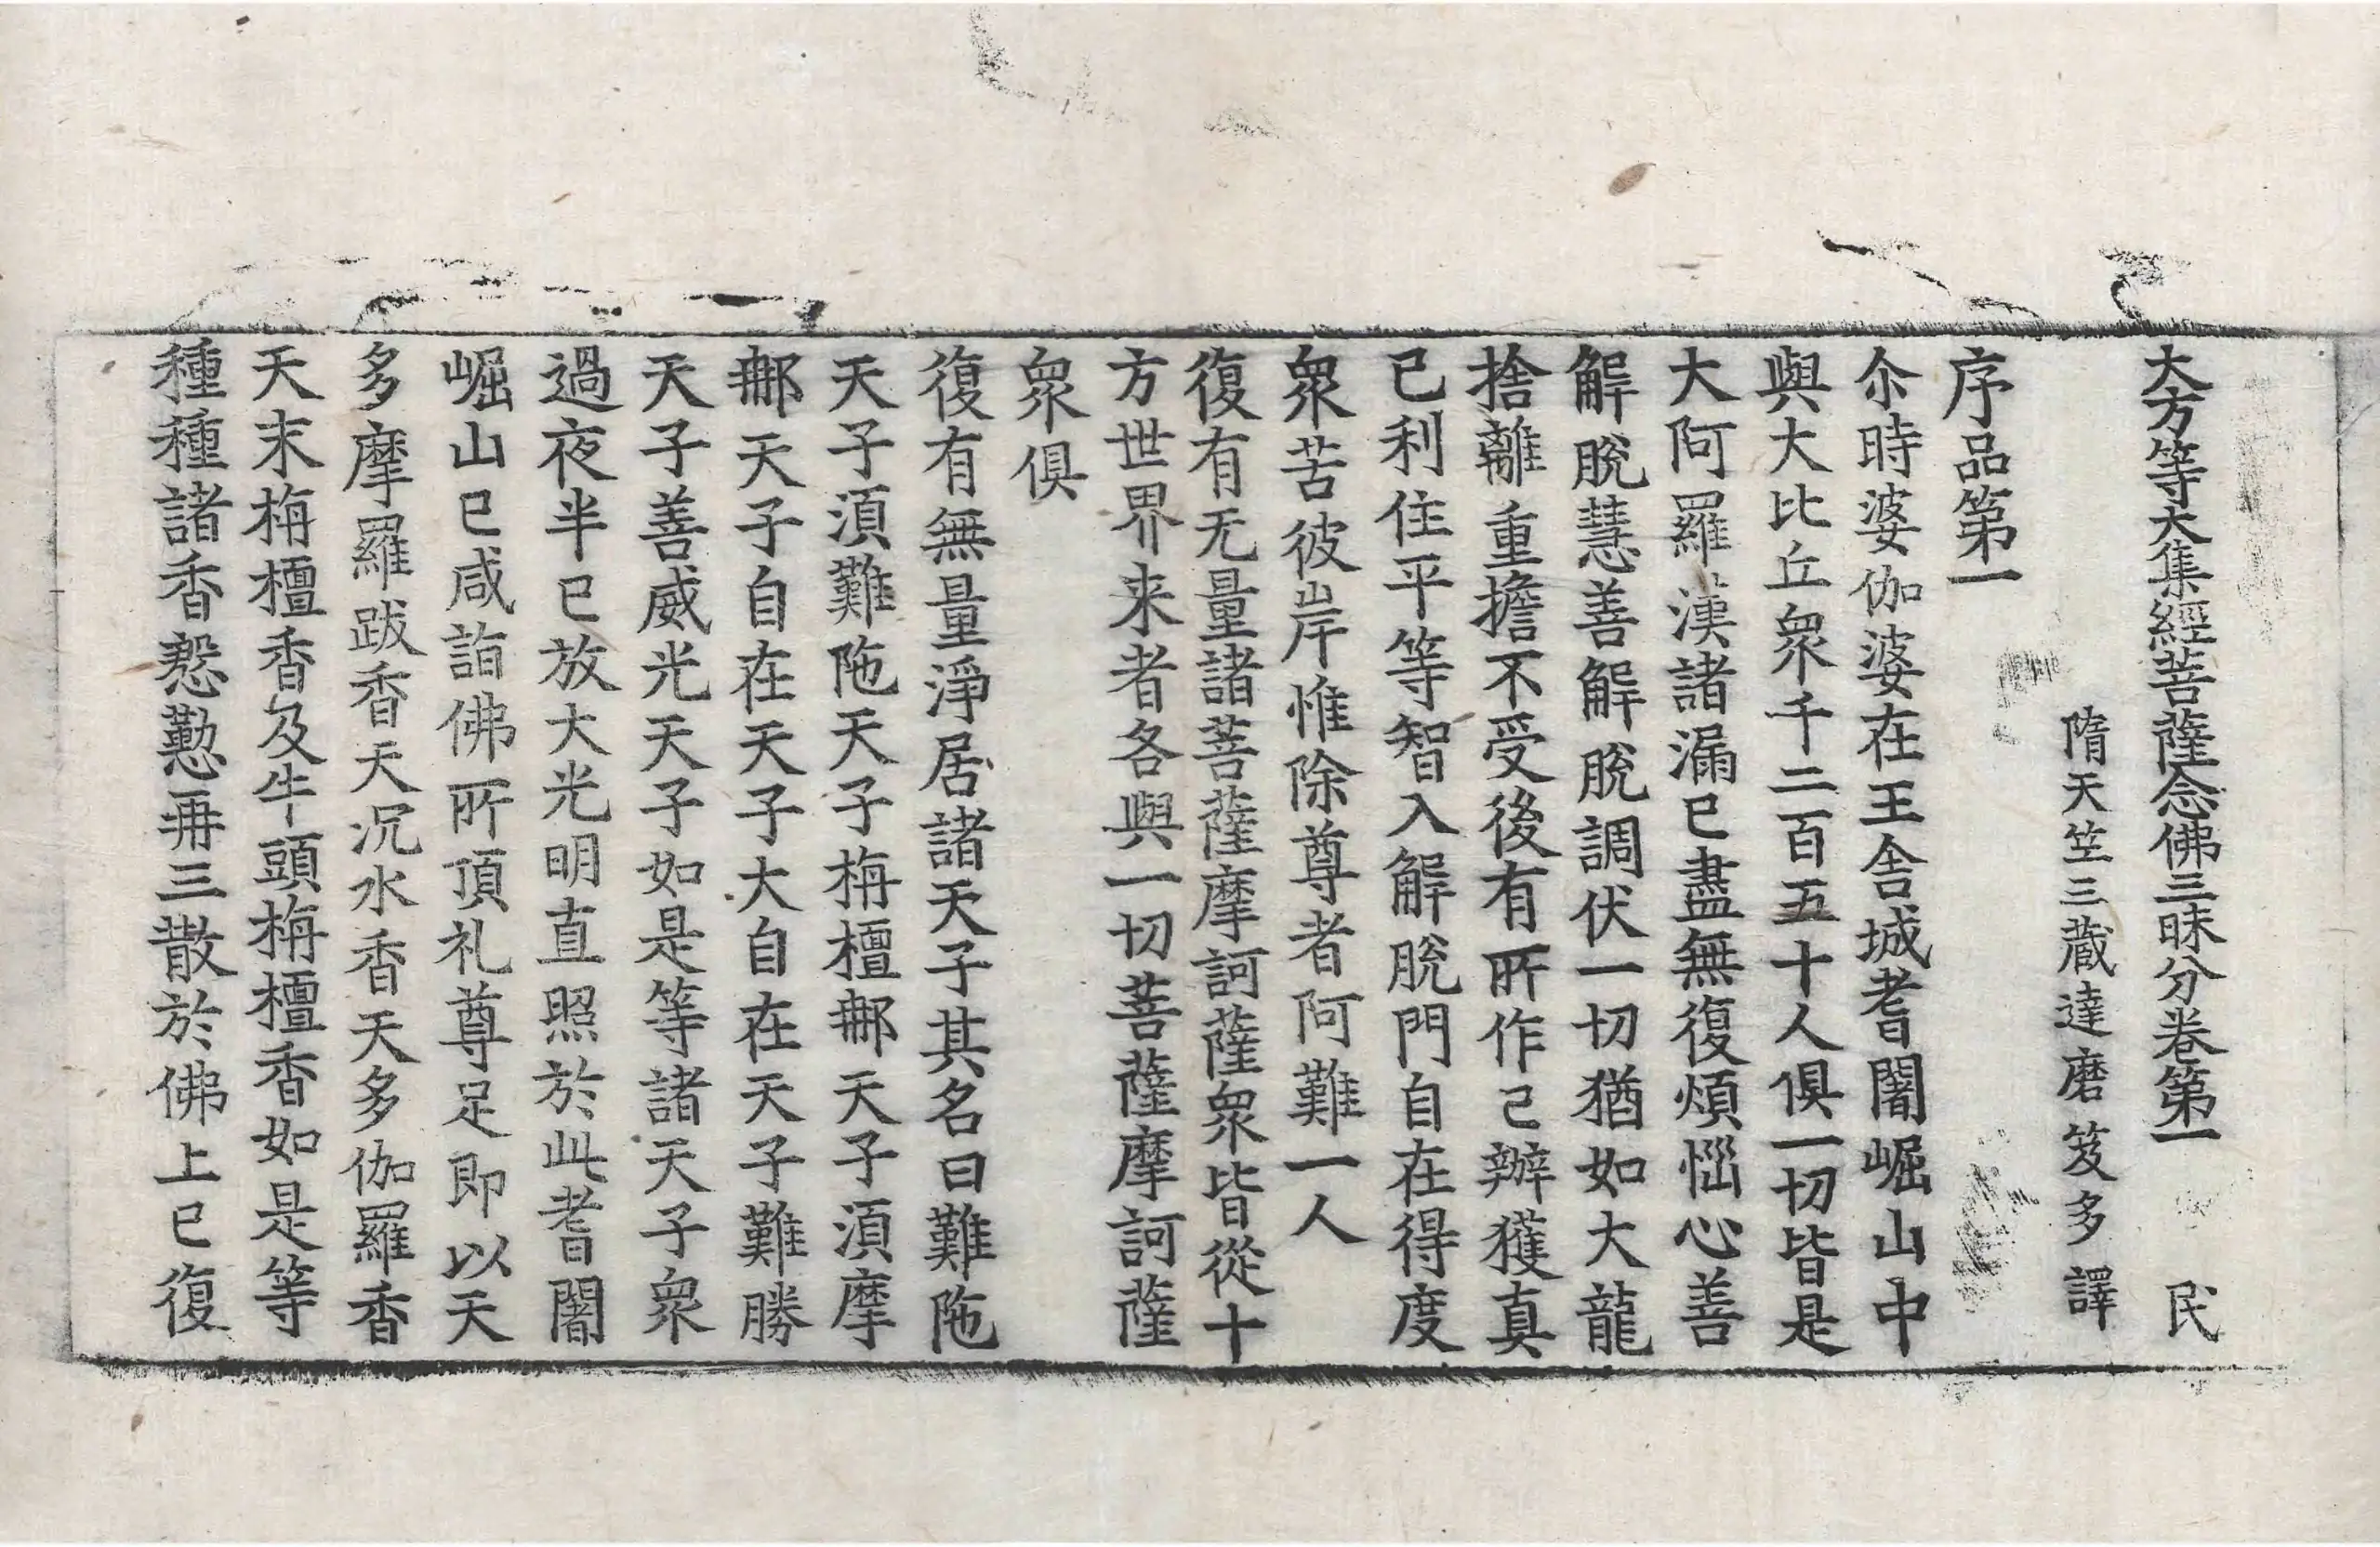 大方等大集經菩薩念佛三昧分卷第一 民
隋天竺三藏達磨笈多譯
序品第一
尒時婆伽婆在王舍城耆闍崛山中
與大比丘衆千二百五十人俱一切皆是
大阿羅漢諸漏已盡無復煩惱心善
解脫慧善解脫調伏一切猶如大龍
捨離重擔不受後有所作已辦獲真
已利住平等智入解脫門自在得度
衆苦彼岸惟除尊者阿難一人
復有无量諸菩薩摩訶薩衆皆從十
方世界来者各與一切菩薩摩訶薩
衆俱
復有無量淨居諸天子其名曰難陁
天子湏難陁天子栴檀郍天子湏摩
郍天子自在天子大自在天子難勝
天子善威光天子如是等諸天子衆
過夜半已放大光明直照於此耆闍
崛山已咸詣佛所頂礼尊足即以天
多摩羅跋香天沉水香天多伽羅香
天末栴檀香及牛頭栴檀香如是等
種種諸香慇懃再三散於佛上已復